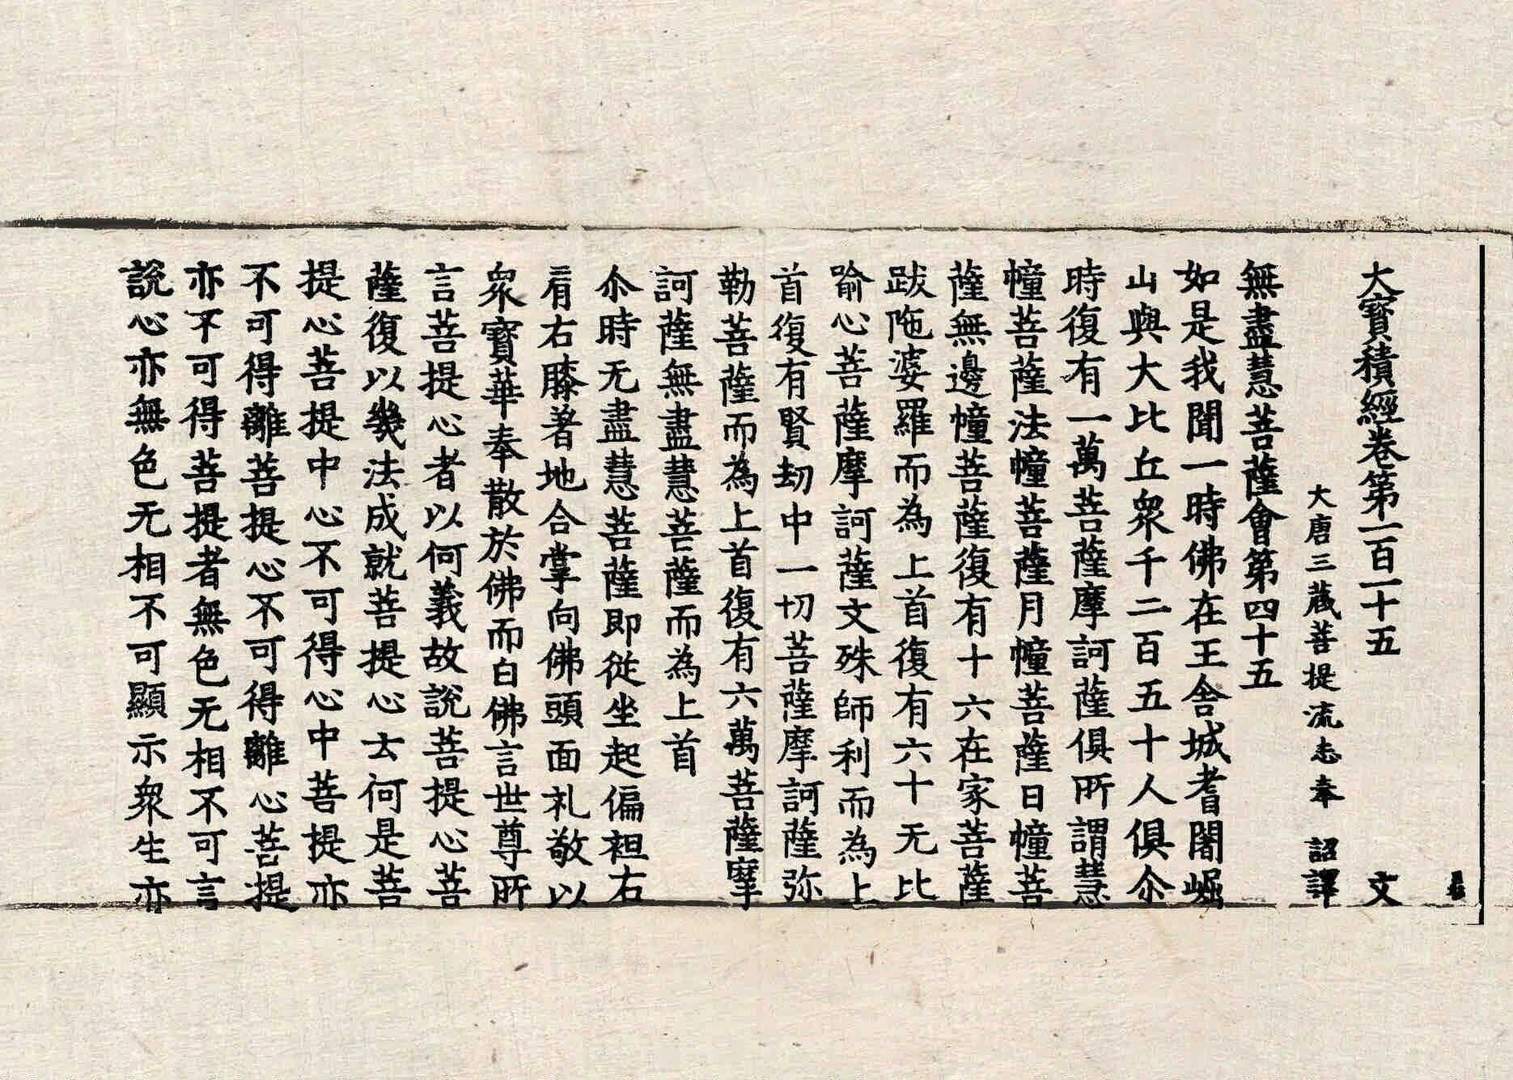 大寳積經卷第一百一十五 文
大唐三蔵菩提流志奉 詔譯
無盡慧菩薩會第四十五
如是我聞一時佛在王舍城耆闍崛
山與大比丘衆千二百五十人俱尒
時復有一萬菩薩摩訶薩俱所謂慧
幢菩薩法幢菩薩月幢菩薩日幢菩
薩無邊幢菩薩復有十六在家菩薩
跋陁婆羅而為上首復有六十无比
喻心菩薩摩訶薩文殊師利而為上
首復有賢劫中一切菩薩摩訶薩弥
勒菩薩而為上首復有六萬菩薩摩
訶薩無盡慧菩薩而為上首
尒時无盡慧菩薩即從坐起偏袒右
肩右膝著地合掌向佛頭面礼敬以
衆寳華奉散於佛而白佛言世尊所
言菩提心者以何義故說菩提心菩
薩復以幾法成就菩提心云何是菩
提心菩提中心不可得心中菩提亦
不可得離菩提心不可得離心菩提
亦不可得菩提者無色无相不可言
說心亦無色无相不可顯示衆生亦